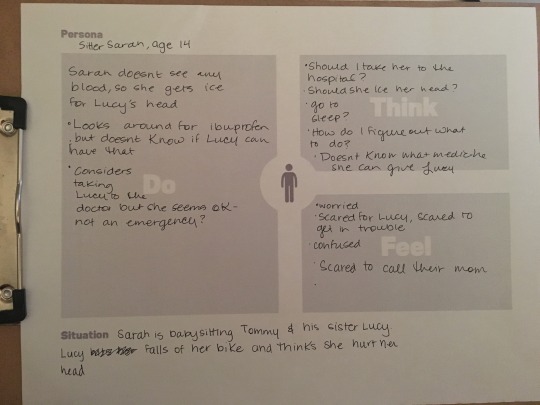 Persona
Sitter Sarah, age 14
Sarah doesnt see any
blood, so she gets ice
for Lucy's head
• Looks around for ibuprofen
but doesnt know if Lucy can
have that
• Considers
taking
Lucy to the
doctor but she seems ok-
not an emergency?
Do
• Should I take her to the
hospital?
• Should she Ice her head?
• go to
sleep?
• How do I figure out what
to do?
• Doesnt know what medicine
she can give Lucy
Think
• worried
• Scared for Lucy, scared to
get in trouble
• confused
• Scared to call their mom
•
Feel
Situation Sarah is babysitting Tommy & his sister Lucy.
Lucy falls of her bike and thinks she hurt her
head